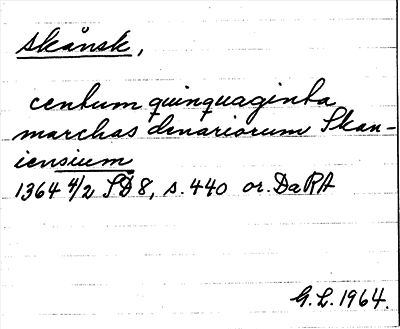 skånsk,
centum quinquaginta
marchas denariorum Skan-
iensium
1364 4/2 SD 8, s. 440 or. DaRA
G.L. 1964.